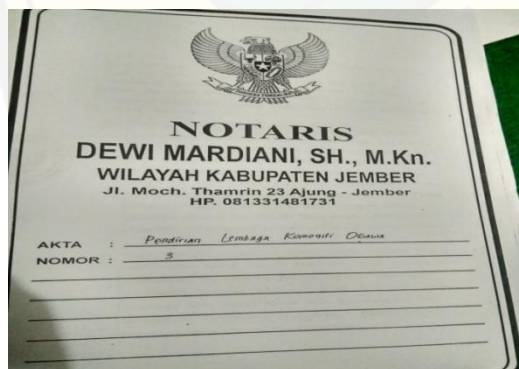 NOTARIS
DEWI MARDIANI, SH., M.Kn.
WILAYAH KABUPATEN JEMBER
Jl. Moch. Thamrin 23 Ajung - Jember
HP. 081331481731
AKTA : Pendirian Lembaga Komoniti
NOMOR : 3